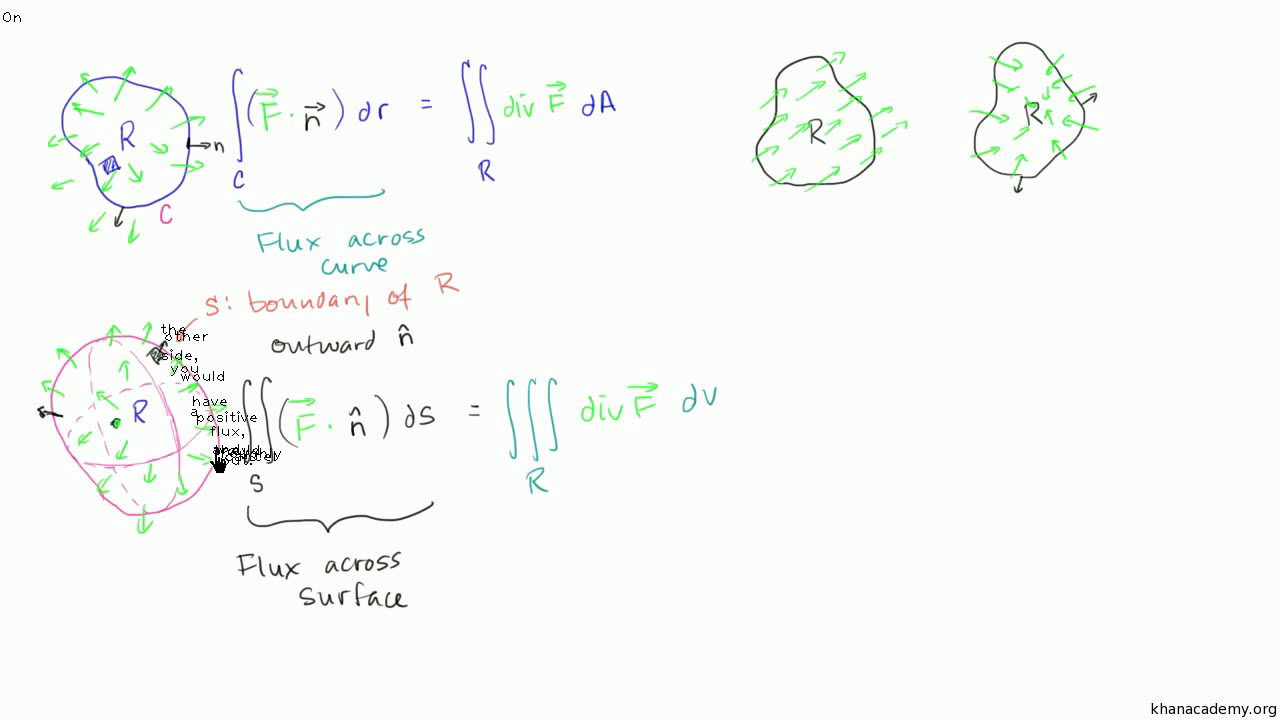 On
R
n
C
∫_C (F⃗ · n⃗) dr = ∬_R div F⃗ dA
Flux across
curve
R
R
S: boundary of R
outward n̂
the
other
side,
you
would
have
a
positive
flux,
R
∬_S (F⃗ · n̂) ds = ∭_R div F⃗ dv
Flux across
surface
khanacademy.org